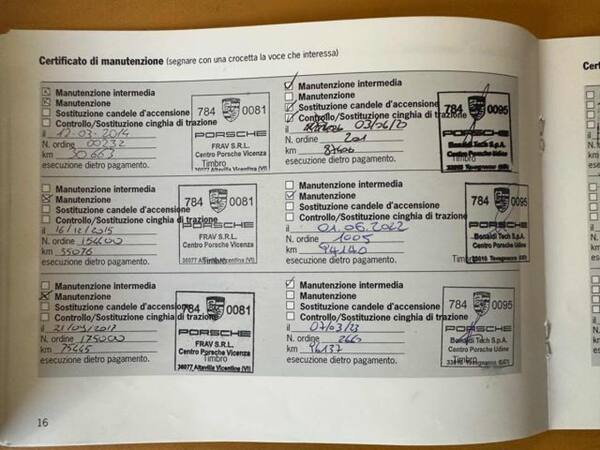 Certificato di manutenzione (segnare con una crocetta la voce che interessa)
Manutenzione intermedia
Manutenzione
Sostituzione candele d'accensione
Controllo/Sostituzione cinghia di trazione
il 12.03.2014
N. ordine 00232
km 30.663
esecuzione dietro pagamento.
784 0081
PORSCHE
FRAV S.R.L.
Centro Porsche Vicenza
Timbro
36077 Altavilla Vicentina (VI)
Manutenzione intermedia
Manutenzione
Sostituzione candele d'accensione
Controllo/Sostituzione cinghia di trazione
il 16/12/2015
N. ordine
km 55076
esecuzione dietro pagamento.
784 0081
PORSCHE
FRAV S.R.L.
Centro Porsche Vicenza
Timbro
36077 Altavilla Vicentina (VI)
Manutenzione intermedia
Manutenzione
Sostituzione candele d'accensione
Controllo/Sostituzione cinghia di trazione
il 21/04/2017
N. ordine 175000
km
esecuzione dietro pagamento.
784 0081
PORSCHE
FRAV S.R.L.
Centro Porsche Vicenza
Timbro
36077 Altavilla Vicentina (VI)
Manutenzione intermedia
Manutenzione
Sostituzione candele d'accensione
Controllo/Sostituzione cinghia di trazione
il 03/06/20
N. ordine 201
km 87606
esecuzione dietro pagamento.
784 0095
PORSCHE
Bonaldi Tech S.p.A.
Centro Porsche Udine
Timbro
33010 Tavagnacco (UD)
Manutenzione intermedia
Manutenzione
Sostituzione candele d'accensione
Controllo/Sostituzione cinghia di trazione
il 01.06.2022
N. ordine 1005
km 94140
esecuzione dietro pagamento.
784 0095
PORSCHE
Bonaldi Tech S.p.A.
Centro Porsche Udine
Timbro
33010 Tavagnacco (UD)
Manutenzione intermedia
Manutenzione
Sostituzione candele d'accensione
Controllo/Sostituzione cinghia di trazione
il 07/03/23
N. ordine 266
km 96137
esecuzione dietro pagamento.
784 0095
PORSCHE
Bonaldi Tech S.p.A.
Centro Porsche Udine
Timbro
33010 Tavagnacco (UD)
16